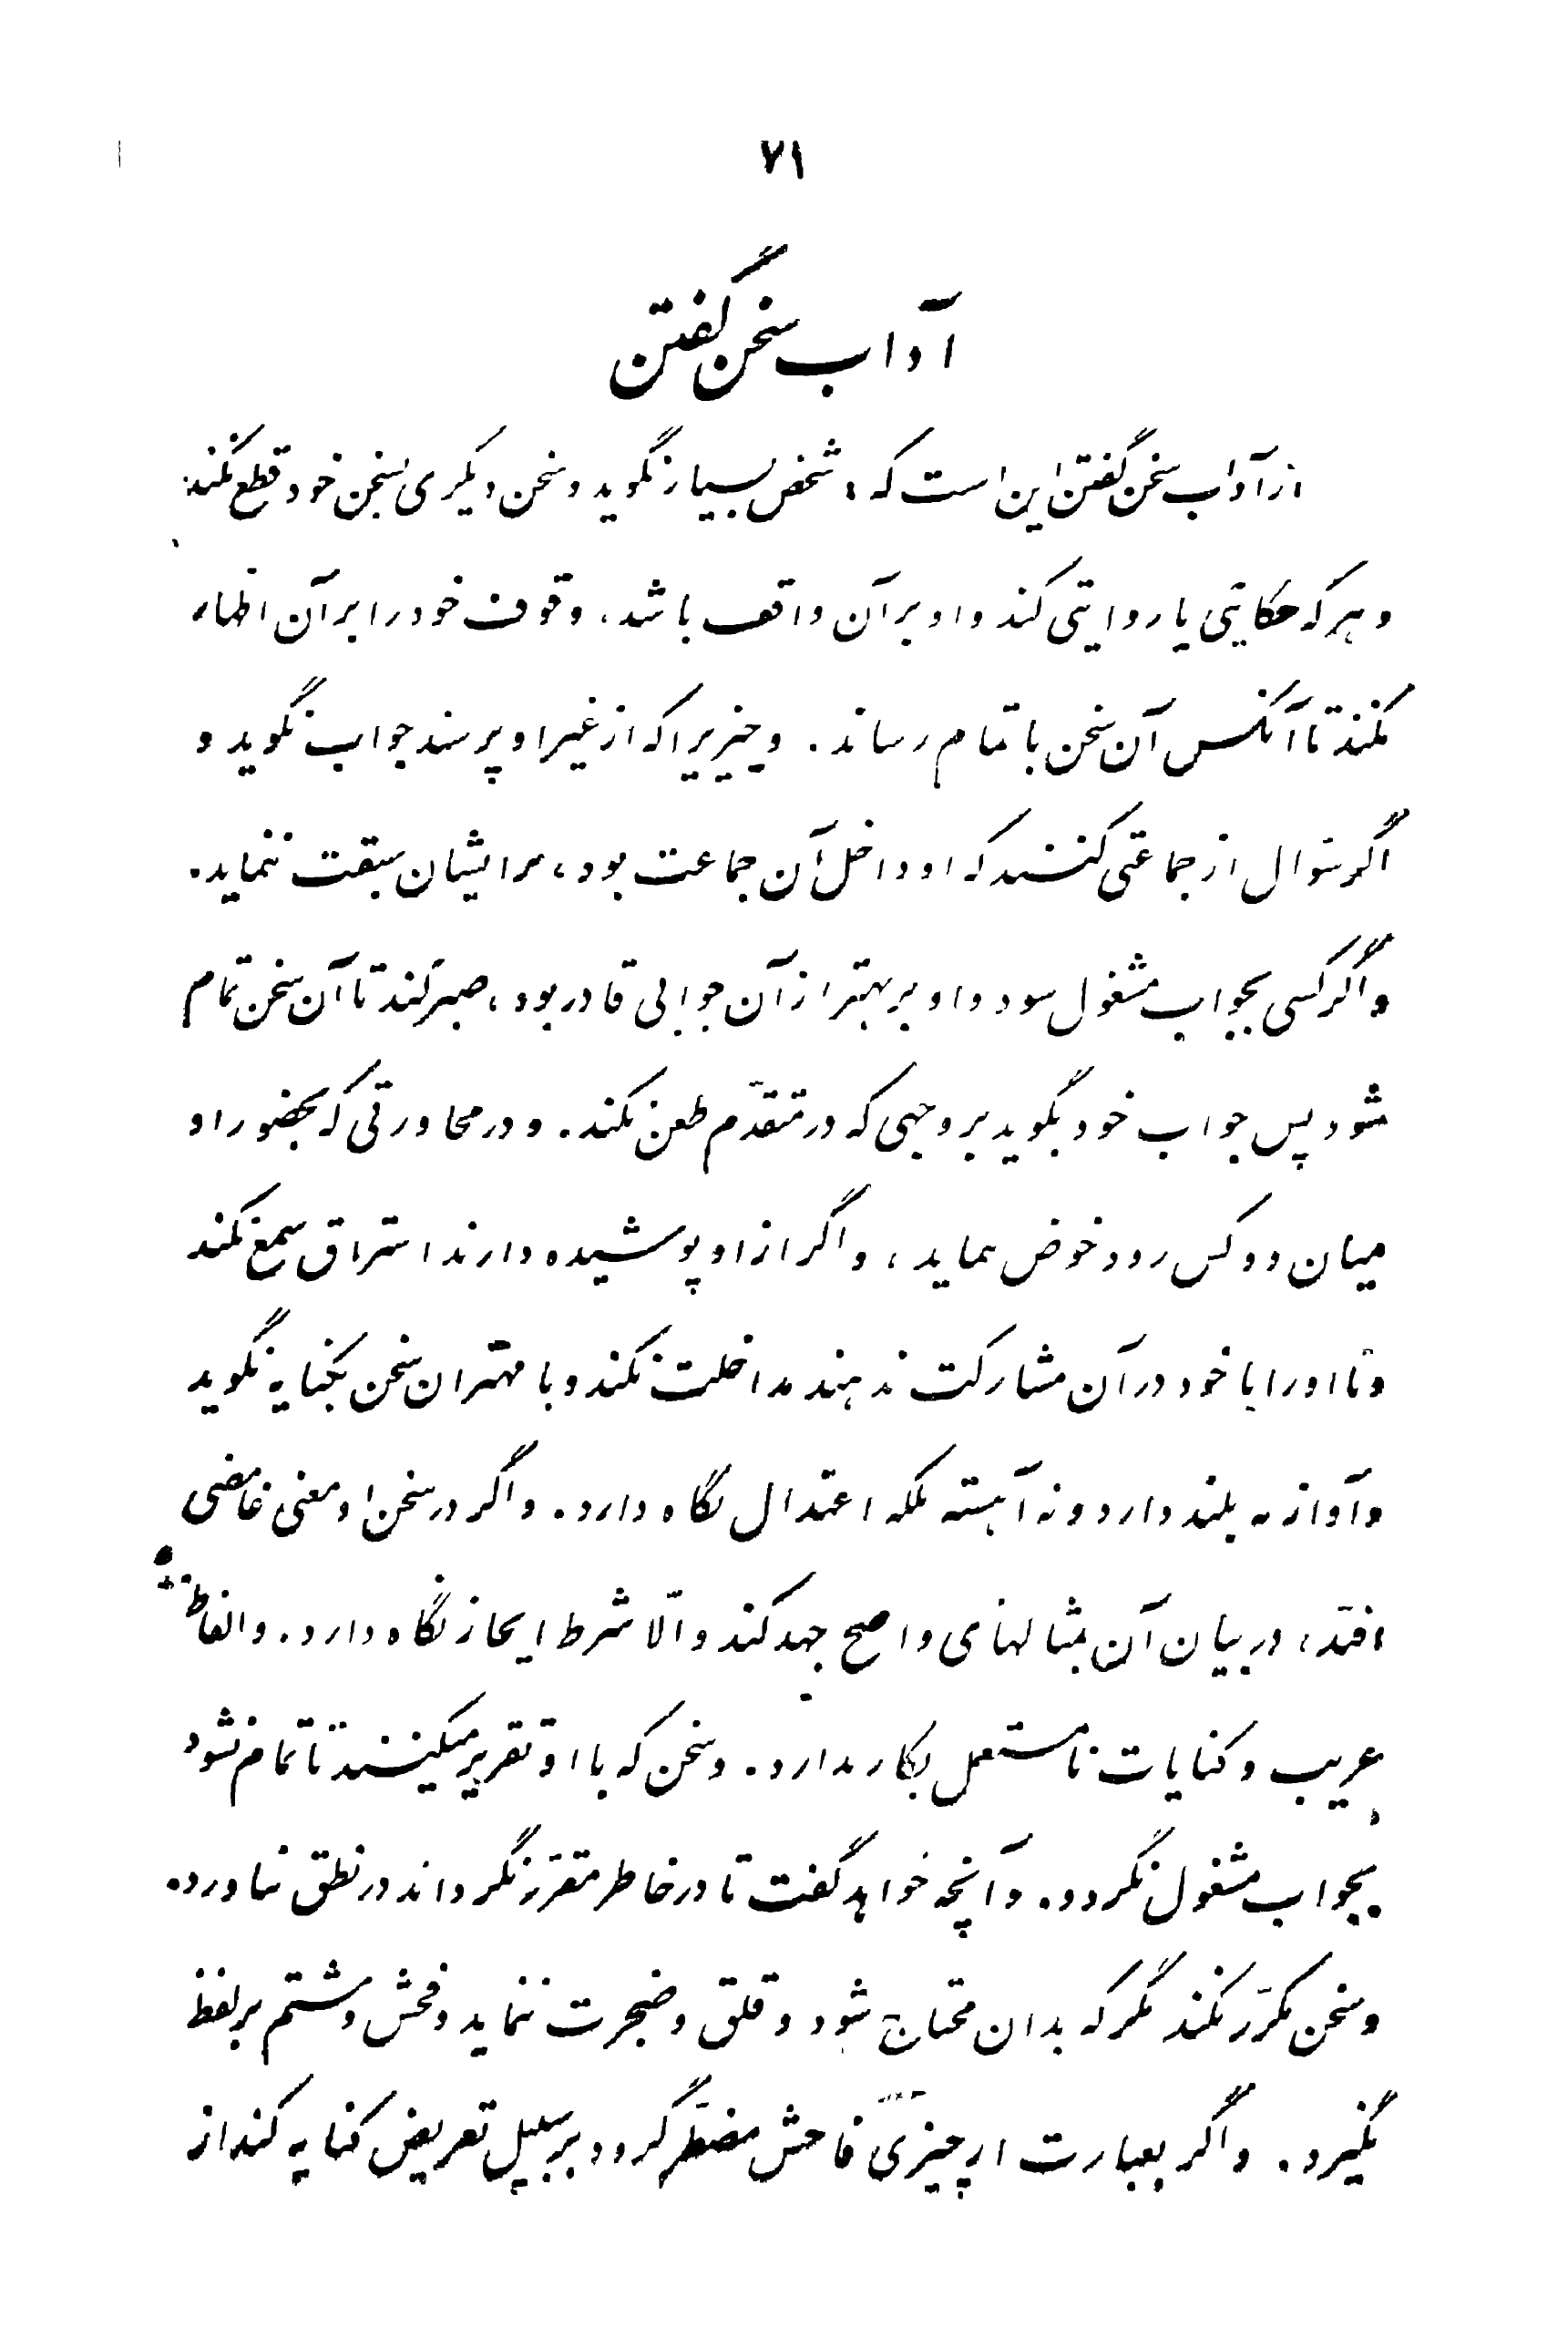 ۷۱
آداب سخن گفتن
از آداب سخن گفتن این است که: شخص بسیار نگوید و سخن دیگری بسخن خود قطع نکند.
و هر که حکایتی یا روایتی کند و او بر آن واقف باشد، وقوف خود را بر آن اظهار
نکند تا آنکس آن سخن باتمام رساند. و چیزیرا که از غیر او پرسند جواب نگوید و
اگر سؤال از جماعتی کنند که او داخل آن جماعت بود، بر ایشان سبقت ننماید.
و اگر کسی بجواب مشغول شود و او بر بهتر از آن جوابی قادر بود، صبر کند تا آن سخن تمام
شود پس جواب خود بگوید بر وجهی که در متقدّم طعن نکند. و در محاورتی که بحضور او
میان دو کس رود خوض ننماید، و اگر از او پوشیده دارند استراق سمع نکند
و تا او را با خود در آن مشارکت ندهند مداخلت نکند و با مهتران سخن بکنایه نگوید
و آواز نه بلند دارد و نه آهسته بلکه اعتدال نگاه دارد. و اگر در سخن او معنی غامضی
افتد، در بیان آن بمثالهای واضح جهد کند و الّا شرط ایجاز نگاه دارد. و الفاظ
غریب و کنایات نامستعمل بکار ندارد. و سخن که با او تقریر میکنند تا تمام نشود
بجواب مشغول نگردد. و آنچه خواهد گفت تا در خاطر مقرّر نگرداند در نطق نیاورد.
و سخن مکرّر نکند مگر که بدان محتاج شود و قلق و ضجرت ننماید و فحش و شتم بر لفظ
نگیرد. و اگر بعبارت از چیزی فاحش مضطرّ گردد بر سبیل تعریض کنایه کند از